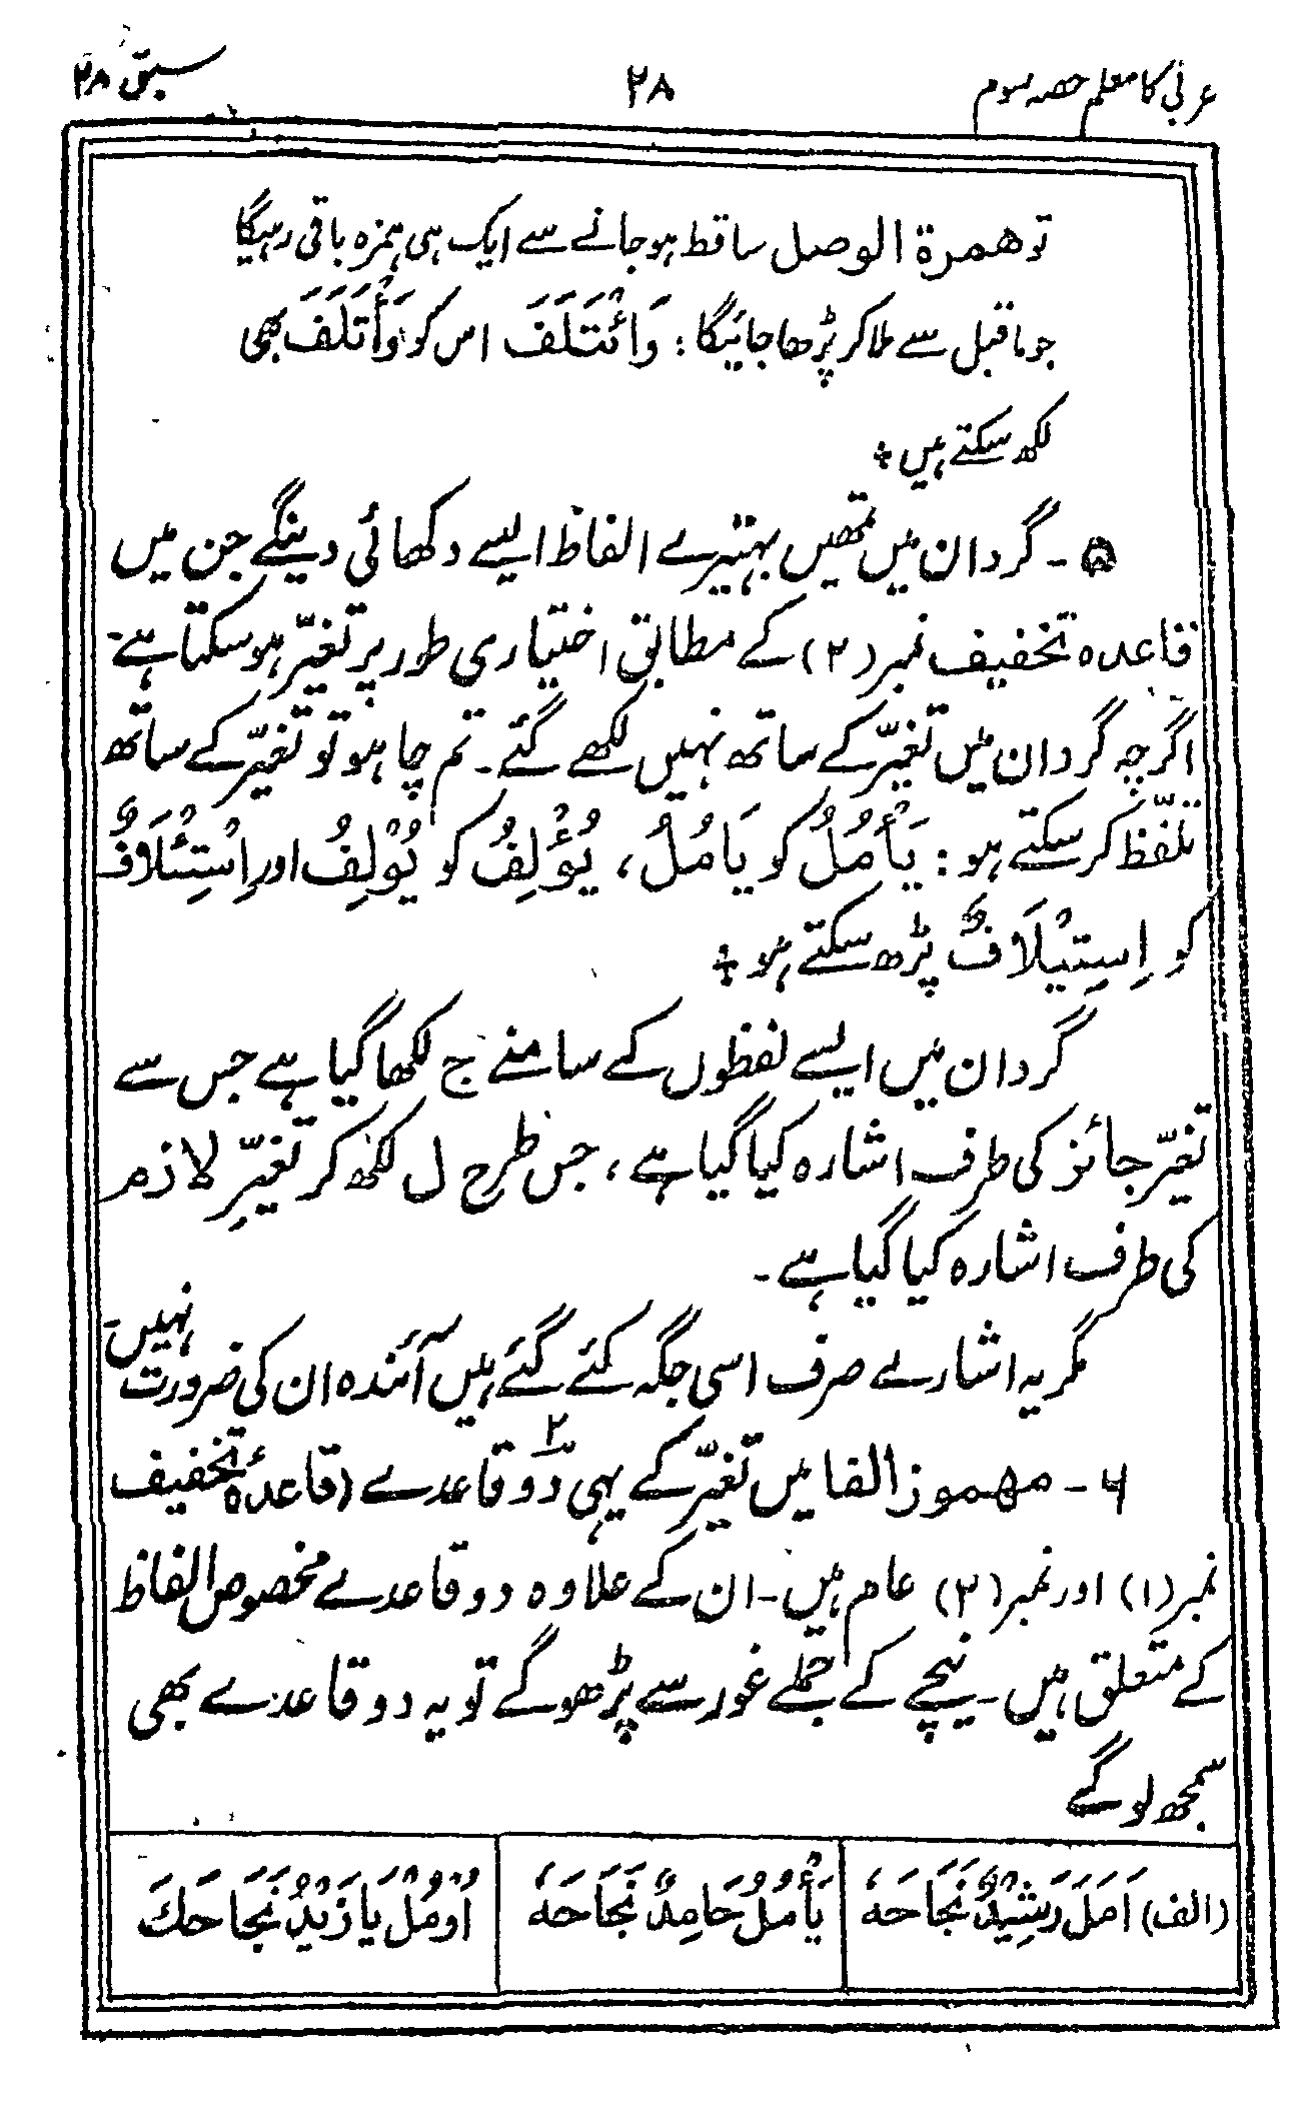 عربی کا معلم حصہ سوم ۲۸ سبق ۲۸
تو همزة الوصل ساقط ہو جانے سے ایک ہی ہمزہ باقی رہیگا
جو ماقبل سے ملا کر پڑھا جائیگا : وَائْتَلَفَ اس کو وَأْتَلَفَ بھی
لکھ سکتے ہیں ÷
۵ - گردان میں تمھیں بہتیرے الفاظ ایسے دکھائی دینگے جن میں
قاعدہ تخفیف نمبر (۲) کے مطابق اختیاری طور پر تغیّر ہو سکتا ہے -
اگرچہ گردان میں تغیّر کے ساتھ نہیں لکھے گئے - تم چاہو تو تغیّر کے ساتھ
تلفّظ کر سکتے ہو : يَأْمُلُ کو يَامُلُ ، يُؤْلِفُ کو يُوْلِفُ اور اِسْتِئْلَافٌ
کو اِسِتِيْلَافٌ پڑھ سکتے ہو ÷
گردان میں ایسے لفظوں کے سامنے ج لکھا گیا ہے جس سے
تغیّر جائز کی طرف اشارہ کیا گیا ہے ، جس طرح ل لکھ کر تغیّرِ لازم
کی طرف اشارہ کیا گیا ہے -
مگر یہ اشارے صرف اسی جگہ کئے گئے ہیں آئندہ ان کی ضرورت نہیں -
۶ - مهموز الفا میں تغیّر کے یہی دو ۲ قاعدے (قاعدۂ تخفیف
نمبر (۱) اور نمبر (۲) عام ہیں - ان کے علاوہ دو قاعدے مخصوص الفاظ
کے متعلق ہیں - نیچے کے جملے غور سے پڑھو گے تو یہ دو قاعدے بھی
سمجھ لو گے
(الف) اَمَلَ رَشِيْدٌ نَجَاحَهُ | يَأْمُلُ حَامِدٌ نَجَاحَهُ | اُوْمُلْ يَا زَيْدُ نَجَاحَكَ